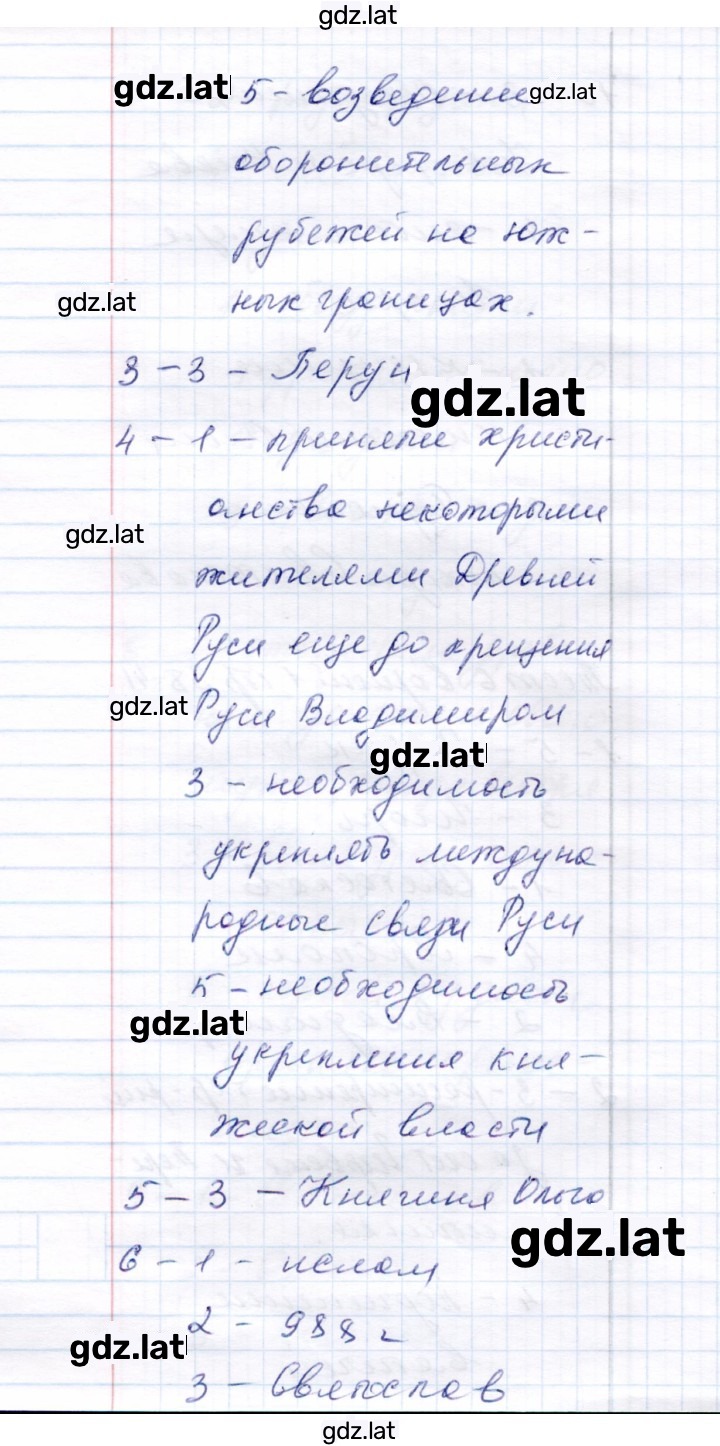 gdz.lat
gdz.lat 5 - возведение gdz.lat
оборонительных
рубежей на юж-
gdz.lat ных границах.
3 - 3 - Перун
gdz.lat
4 - 1 - принятие христи-
анства некоторыми
gdz.lat
жителями Древней
Руси еще до крещения
gdz.lat Руси Владимиром
gdz.lat
3 - необходимость
укреплять междуна-
родные связи Руси
5 - необходимость
gdz.lat
укрепления кня-
жеской власти
5 - 3 - Княгиня Ольга
gdz.lat
6 - 1 - ислам
2 - 988 г
gdz.lat
3 - Святослав
gdz.lat